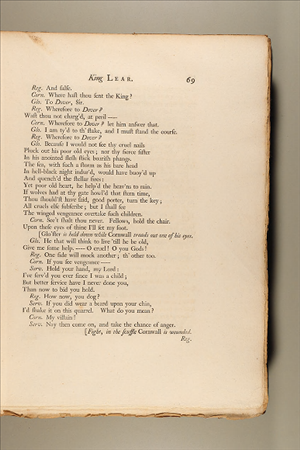 King LEAR. 69
Reg. And false.
Corn. Where hast thou sent the King?
Glo. To Dover, Sir.
Reg. Wherefore to Dover?
Wast thou not charg'd, at peril —
Corn. Wherefore to Dover? let him answer that.
Glo. I am ty'd to th' stake, and I must stand the course.
Reg. Wherefore to Dover?
Glo. Because I would not see thy cruel nails
Pluck out his poor old eyes; nor thy fierce sister
In his anointed flesh stick boarish phangs.
The sea, with such a storm as his bare head
In hell-black night indur'd, would have buoy'd up
And quench'd the stellar fires:
Yet poor old heart, he help'd the heav'ns to rain.
If wolves had at thy gate howl'd that stern time,
Thou should'st have said, good porter, turn the key;
All cruels else subscribe; but I shall see
The winged vengeance overtake such children.
Corn. See't shalt thou never. Fellows, hold the chair.
Upon these eyes of thine I'll set my foot.
[Glo'ster is held down while Cornwall treads out one of his eyes.
Glo. He that will think to live 'till he be old,
Give me some help. — O cruel! O you Gods!
Reg. One side will mock another; th' other too.
Corn. If you see vengeance —
Serv. Hold your hand, my Lord:
I've serv'd you ever since I was a child;
But better service have I never done you,
Than now to bid you hold.
Reg. How now, you dog?
Serv. If you did wear a beard upon your chin,
I'd shake it on this quarrel. What do you mean?
Corn. My villain!
Serv. Nay then come on, and take the chance of anger.
[Fight, in the scuffle Cornwall is wounded.
Reg.